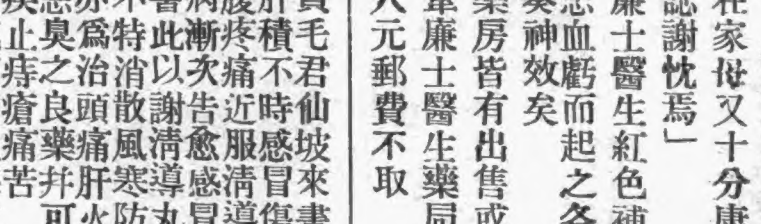 在家母又十分康
誌謝忱焉」
廉士醫生紅色補
血虧而起之各
矣神效矣
藥房皆有出售或
韋廉士醫生藥局
八元郵費不取
貴毛君仙坡來書
肝積不時感冒傷
腹疼痛近服清導
病漸次告愈感冒
醫此以謝清導丸
不特消散風寒防
亦為治頭痛肝火
惡臭之良藥并可
止痔瘡痛苦